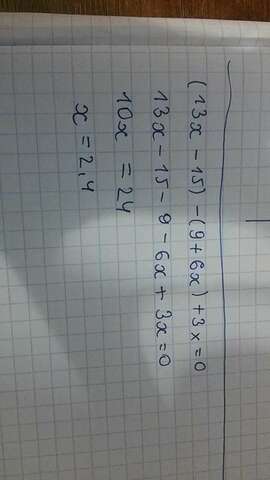 (13x - 15) - (9 + 6x) + 3x = 0
13x - 15 - 9 - 6x + 3x = 0
10x = 24
x = 2,4